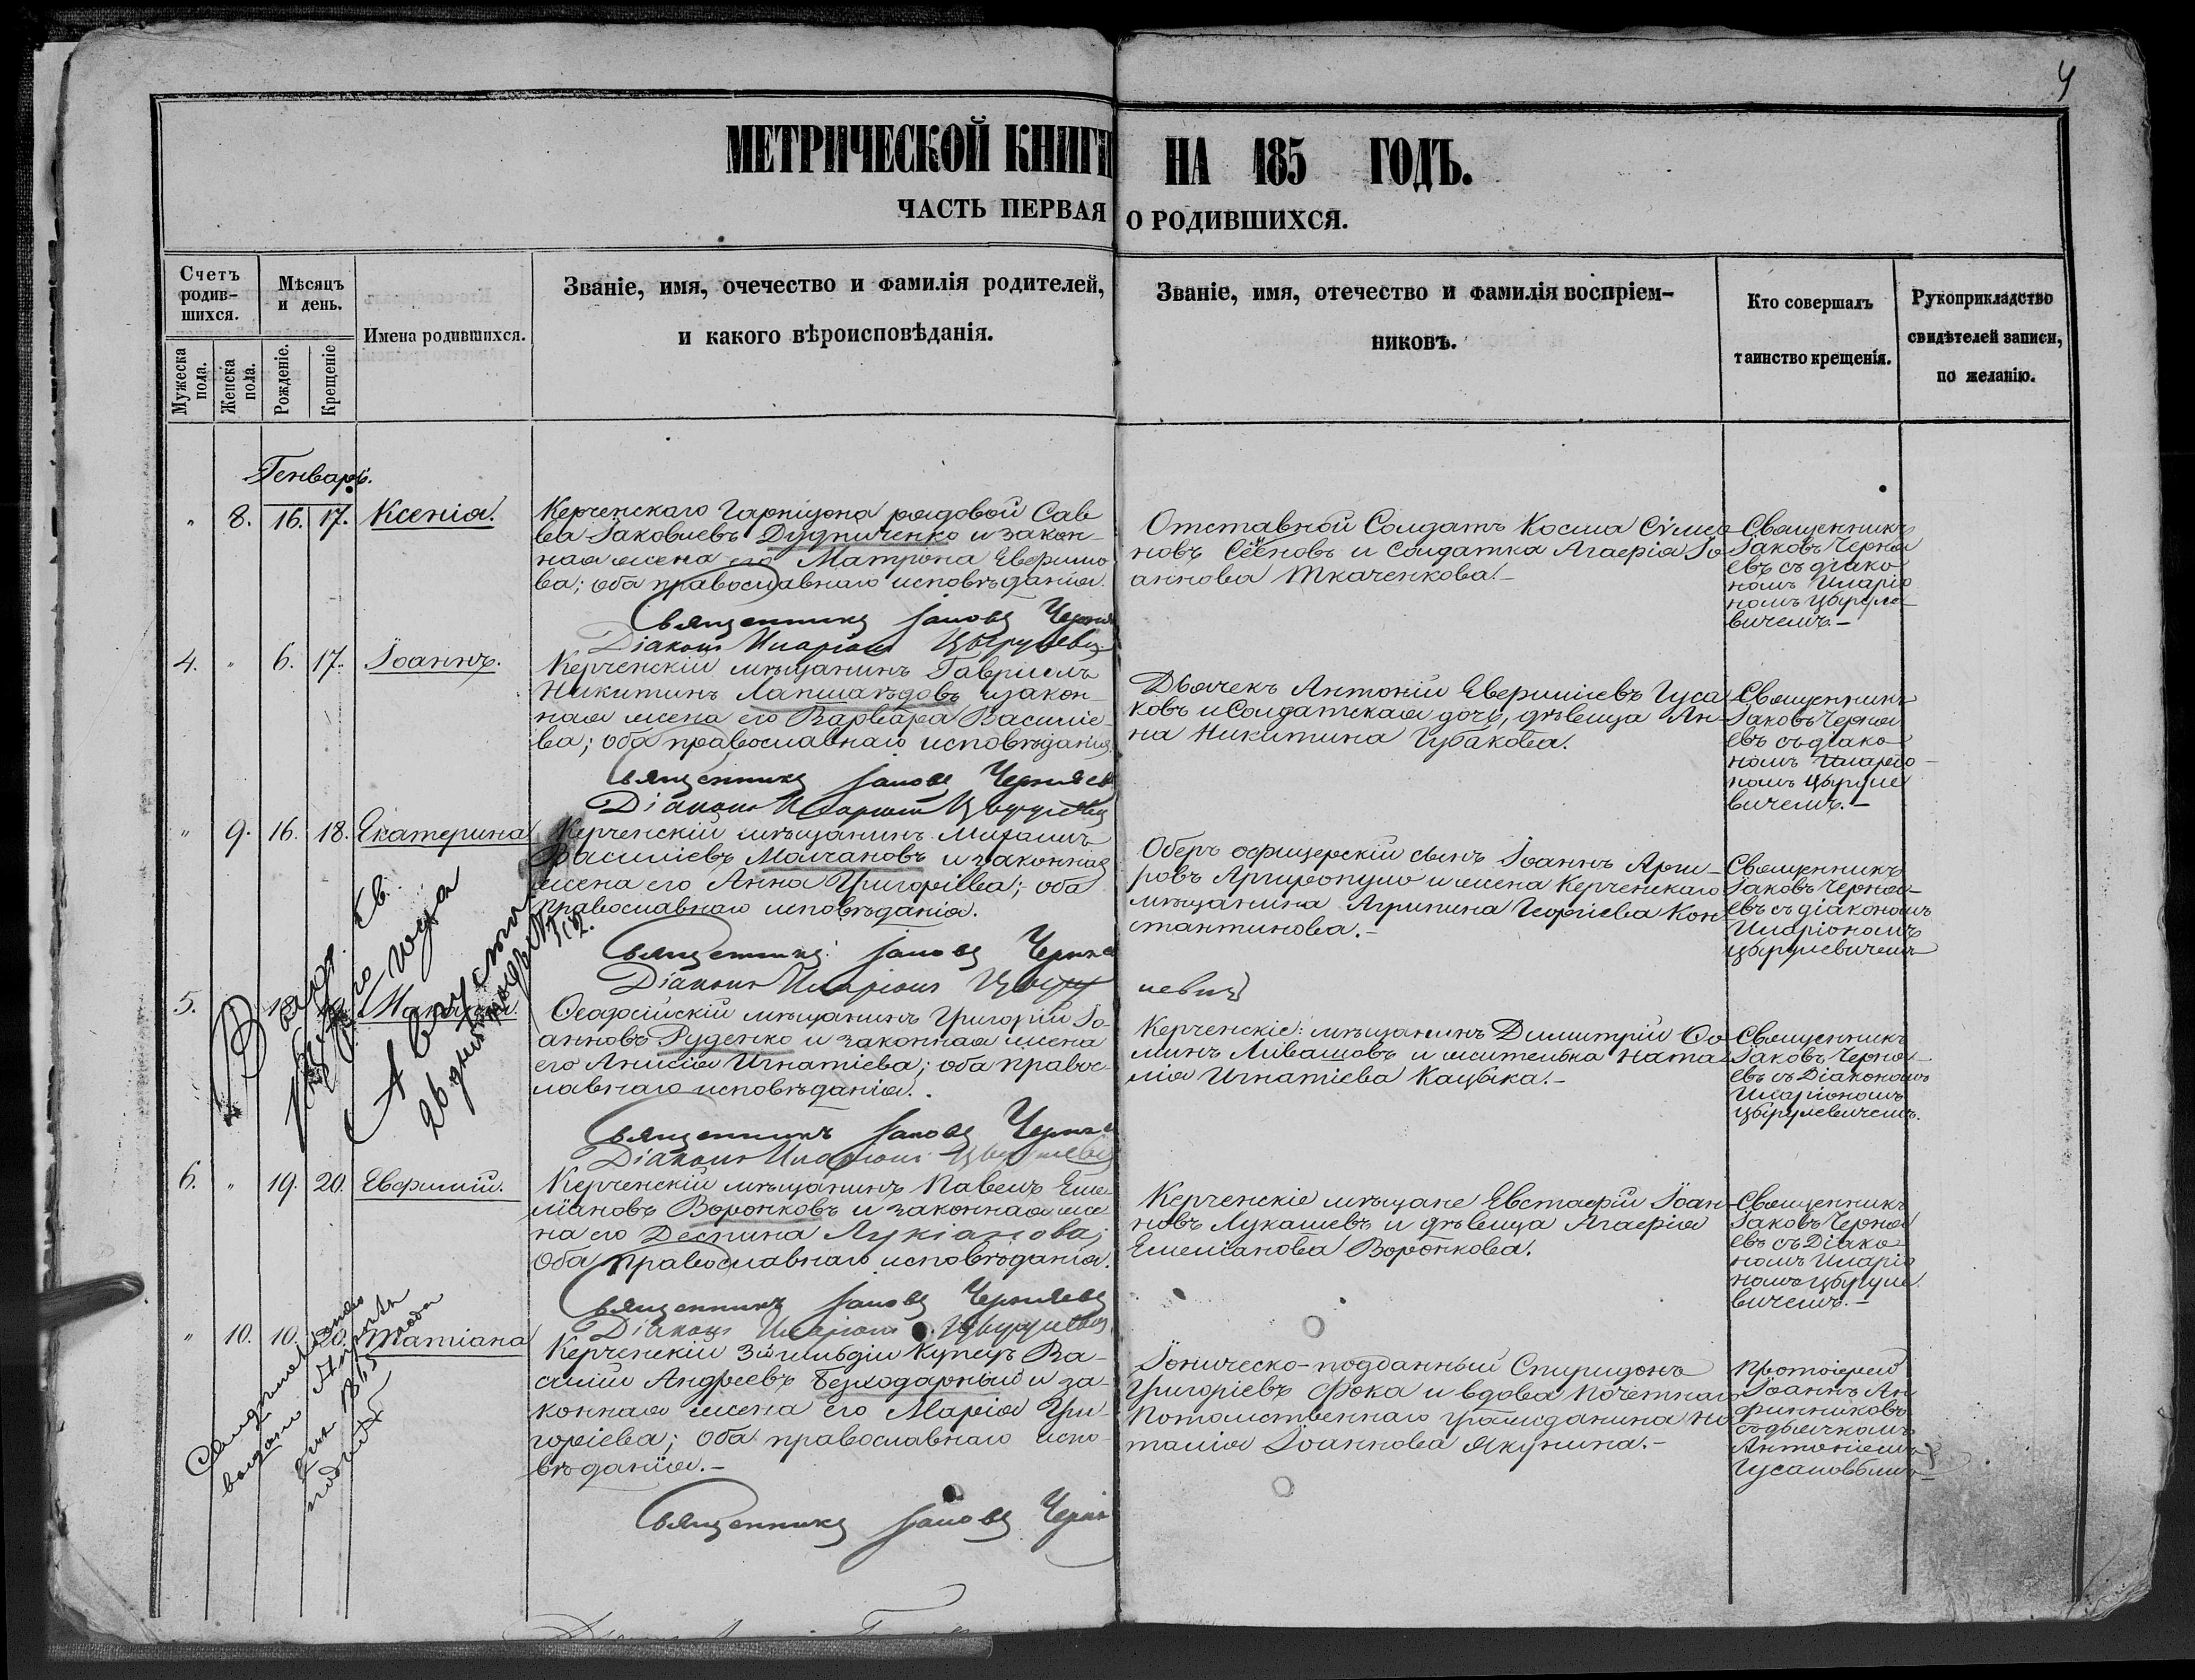 4
МЕТРИЧЕСКОЙ КНИГИ НА 185 ГОДЪ.
ЧАСТЬ ПЕРВАЯ О РОДИВШИХСЯ.
Счетъ родив-
шихся.
Мужеска пола.
Женска пола.
Мѣсяцъ и день.
Рожденіе.
Крещеніе
Имена родившихся.
Званіе, имя, очечество и фамилія родителей,
и какого вѣроисповѣданія.
Званіе, имя, отечество и фамилія воспріем-
никовъ.
Кто совершалъ
таинство крещенія.
Рукоприкладство
свидѣтелей записи,
по желанію.
Генварь.
" 8. 16. 17. Ксенія.
Керченскаго Гарнизона рядовой Сав
ва Іаковлевъ Дудниченко и закон-
ная жена его Матрона Евфимо
ва; оба православнаго исповѣданія.
Священникъ Іаковъ Черня
Діаконъ Иларіонъ Цырулевич
Отставной Солдатъ Косма Сѵмео
новъ и Солдатка Агафія Іо-
аннова Ткаченкова.-
Священникъ
Іаковъ Черня
евъ съ діако
номъ Иларіо
номъ Цыруле-
вичемъ.-
4. " 6. 17. Іоаннъ.
Керченскій мѣщанинъ Гавріилъ
Никитинъ и закон-
ная жена его Варвара Василіе-
ва; оба православнаго исповѣданія
Священникъ Іаковъ Черняев
Діаконъ Иларіон Цырулевич
Дьячекъ Антоній Евфиміевъ Гуса
ковъ и Солдатская дочь, дѣвица Ан-
на Никитина Губакова.
Священникъ
Іаковъ Черня
евъ съ діако-
номъ Иларіо-
номъ Цыруле
вичемъ.-
" 9. 16. 18. Екатерина
Керченскій мѣщанинъ Михаилъ
Василіевъ Молчановъ и законная
жена его Анна Григоріева; оба
православнаго исповѣданія.
Священникъ Іаковъ Черня
Діаконъ Иларіонъ Цыру левич
Оберъ офицерскій сынъ Іоаннъ Арги-
ровъ Аргиропуло и жена Керченскаго
мѣщанина Агрипина Георгіева Кон-
стантинова.-
Священникъ
Іаковъ Черня-
евъ съ діакономъ
Иларіономъ
Цырулевичемъ
5. 18
Ѳеодосійскій мѣщанинъ Григорій Іо-
анновъ Руденко и законная жена
его Анисія Игнатіева; оба правос-
лавнаго исповѣданія.
Священникъ Іаковъ Черня
Діаконъ Иларіонъ Цырулевич
Керченскіе: мѣщанинъ Димитрій Ѳо
минъ Ливашовъ и жителька Ната
лія Игнатіева Кацыка.-
Священникъ
Іаковъ Черня-
евъ съ Діакономъ
Иларіономъ
Цырулевичемъ.
года
Августа
26 дня
6. " 19. 20. Евфимій.
Керченскій мѣщанинъ Павелъ Еме-
ліановъ Воронковъ и законная же
на его Деспина Лукіанова;
Оба православнаго исповѣданія.
Священникъ Іаковъ Черняевъ
Діаконъ Иларіонъ Цырулевич
Керченскіе мѣщане Евстафій Іоан
новъ Лукашевъ и дѣвица Агафія
Емеліанова Воронкова.
Священникъ
Іаковъ Черня
евъ съ Діако-
номъ Иларіо
номъ Цыруле
вичемъ.-
" 10. 10. 20. Татіана
Керченскій 3й гильдіи Купецъ Ва-
силій Андреевъ Безходарный и за-
конная жена его Марія Гри-
горіева; Оба православнаго испо-
вѣданія.-
Священникъ Іаковъ Черня
Іоническо-подданный Спиридонъ
Григоріевъ Фока и вдова Почетнаго
Потомственнаго гражданина На
талія Іоаннова Якунина.-
Протоіерей
Іоаннъ Ан
финниковъ
съ дьячкомъ
Антоніемъ
Гусаковымъ-
выдано
1865 года